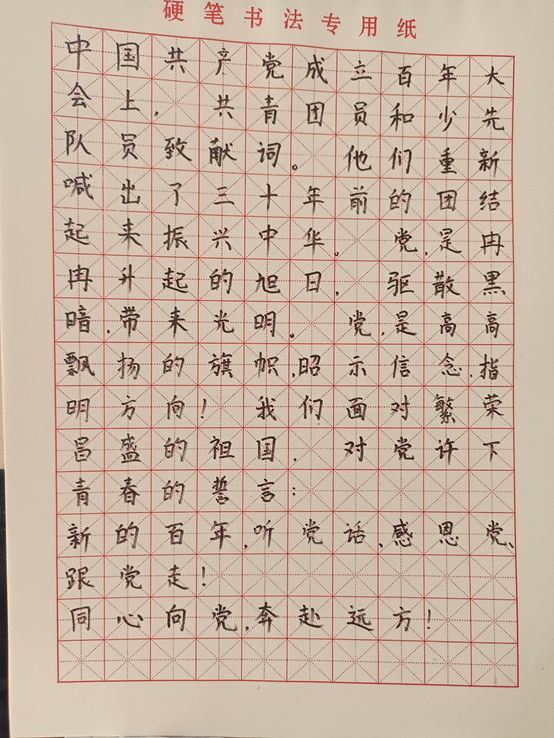 硬笔书法专用纸
中国共产党成立百年大
会上,共青团员和少先
队员致献词。他们重新
喊出了三十年前的团结
起来振兴中华。党,是冉
冉升起的旭日,驱散黑
暗,带来光明。党,是高高
飘扬的旗帜,昭示信念,指
明方向!我们面对繁荣
昌盛的祖国,对党许下
青春的誓言:
新的百年,听党话、感恩党、
跟党走!
同心向党,奔赴远方!